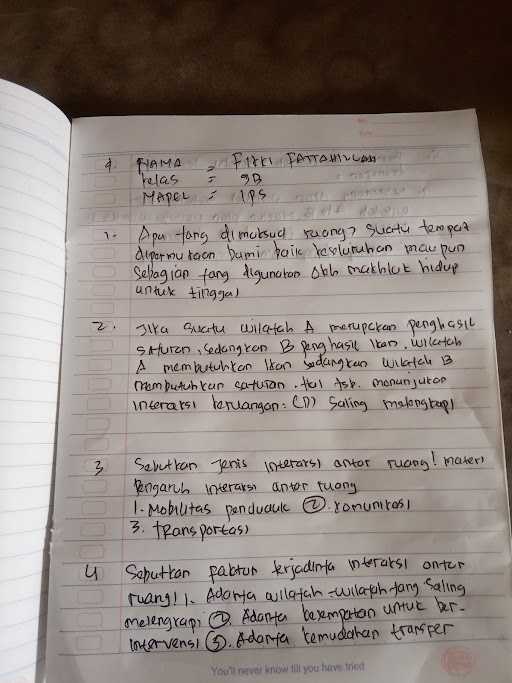 NAMA = FIKRI FATTAHILLAH
Kelas = 9B
MAPEL = IPS
1. Apa yang dimaksud ruang? Suatu tempat
dipermukaan bumi baik keseluruhan maupun
Sebagian yang digunakan Oleh makhluk hidup
untuk tinggal
2. Jika Suatu wilayah A merupakan penghasil
Sayuran, Sedangkan B penghasil Ikan. wilayah
A membutuhkan Ikan Sedangkan wilayah B
membutuhkan sayuran. Hal tsb. menunjukan
interaksi keruangan: (D) Saling melengkapi
3 Sebutkan Jenis interaksi antar ruang! materi
Pengaruh interaksi antar ruang
1. Mobilitas penduduk 2. Komunikasi
3. Transportasi
4 Sebutkan faktor terjadinya interaksi antar
ruang! 1. Adanya wilayah-wilayah yang Saling
melengkapi 2. Adanya kesempatan untuk ber-
intervensi 3. Adanya kemudahan transfer
You'll never know till you have tried